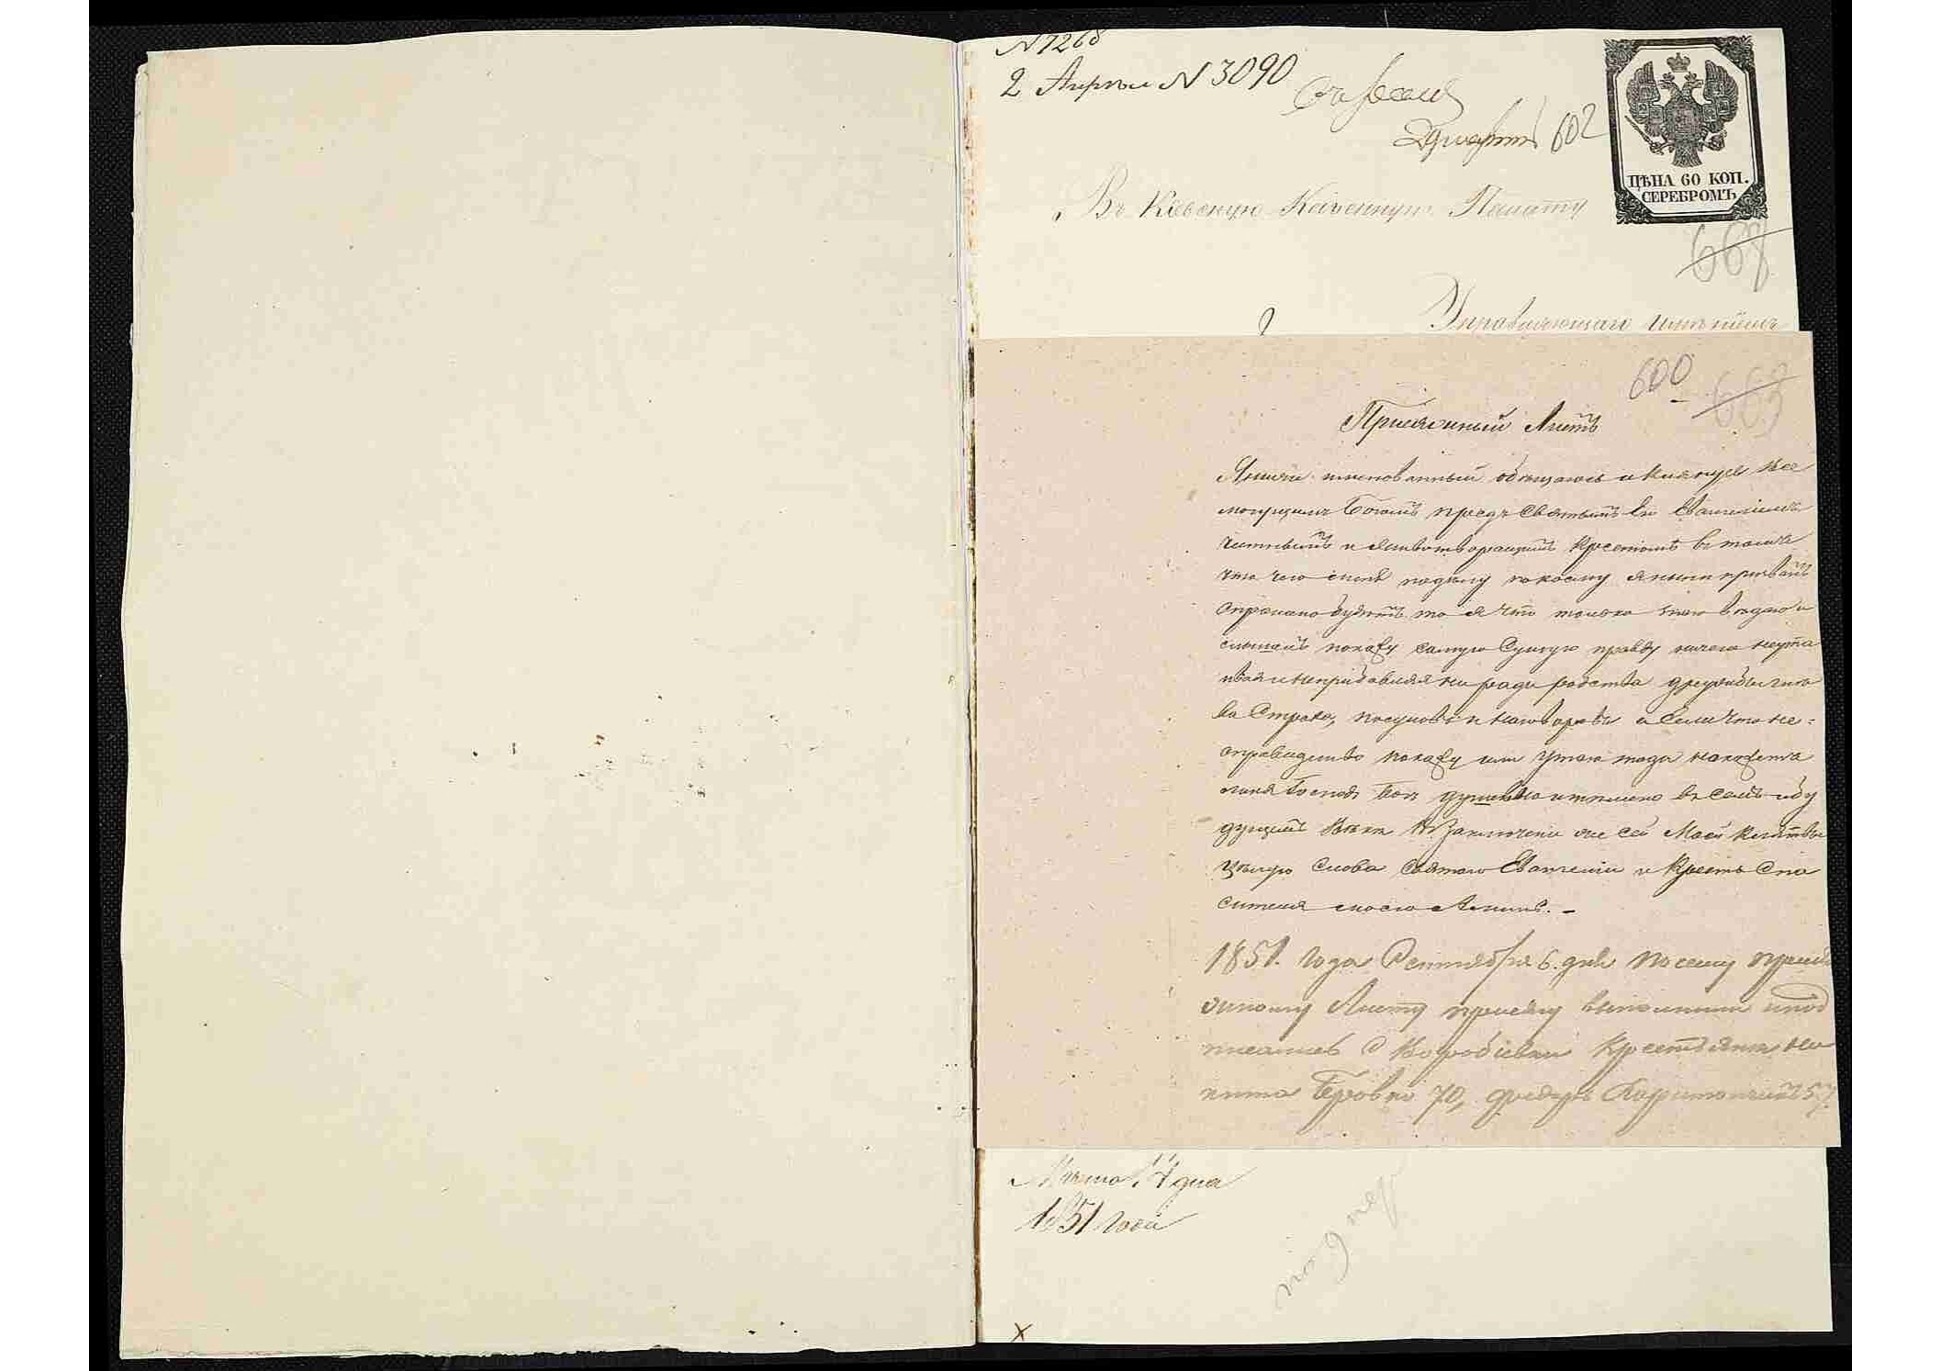 N 7268
2 Апрѣля N 3090
602
ЦѢНА 60 КОП.
СЕРЕБРОМЪ
Въ Кіевскую Казенную Палату
667
Управляющаго имѣніемъ
600 663
Присяжный Листъ
Я ниже именованный обещаюсь и клянусь Все
могущимъ Богомъ предъ Святымъ Его Евангеліемъ
честнымъ и Животворящимъ Крестомъ въ томъ
что чего по дѣлу по коему я ныне призванъ
спрошено будетъ то я что только знаю видалъ и
слышалъ покажу самую Сущую правду ничего неута
ивая и неприбавляя ни ради родства дружбы гнѣ
ва Страха, и а Если что не-
справедливо покажу или утаю тогда накажетъ
меня Господь Богъ душевно и телесно въ семъ и бу
дущемъ вѣке В заключение же сей Моей клятвы
цѣлую Слова Святаго Евангелія и Крестъ Спа
сителя моего Аминь. –
1851. года Сентября 6. дня По сему присяж
жному Листу присягу выполнили и под
писались С Крестьяне Ни
кита 70, Федоръ 57.
дня
1851 года